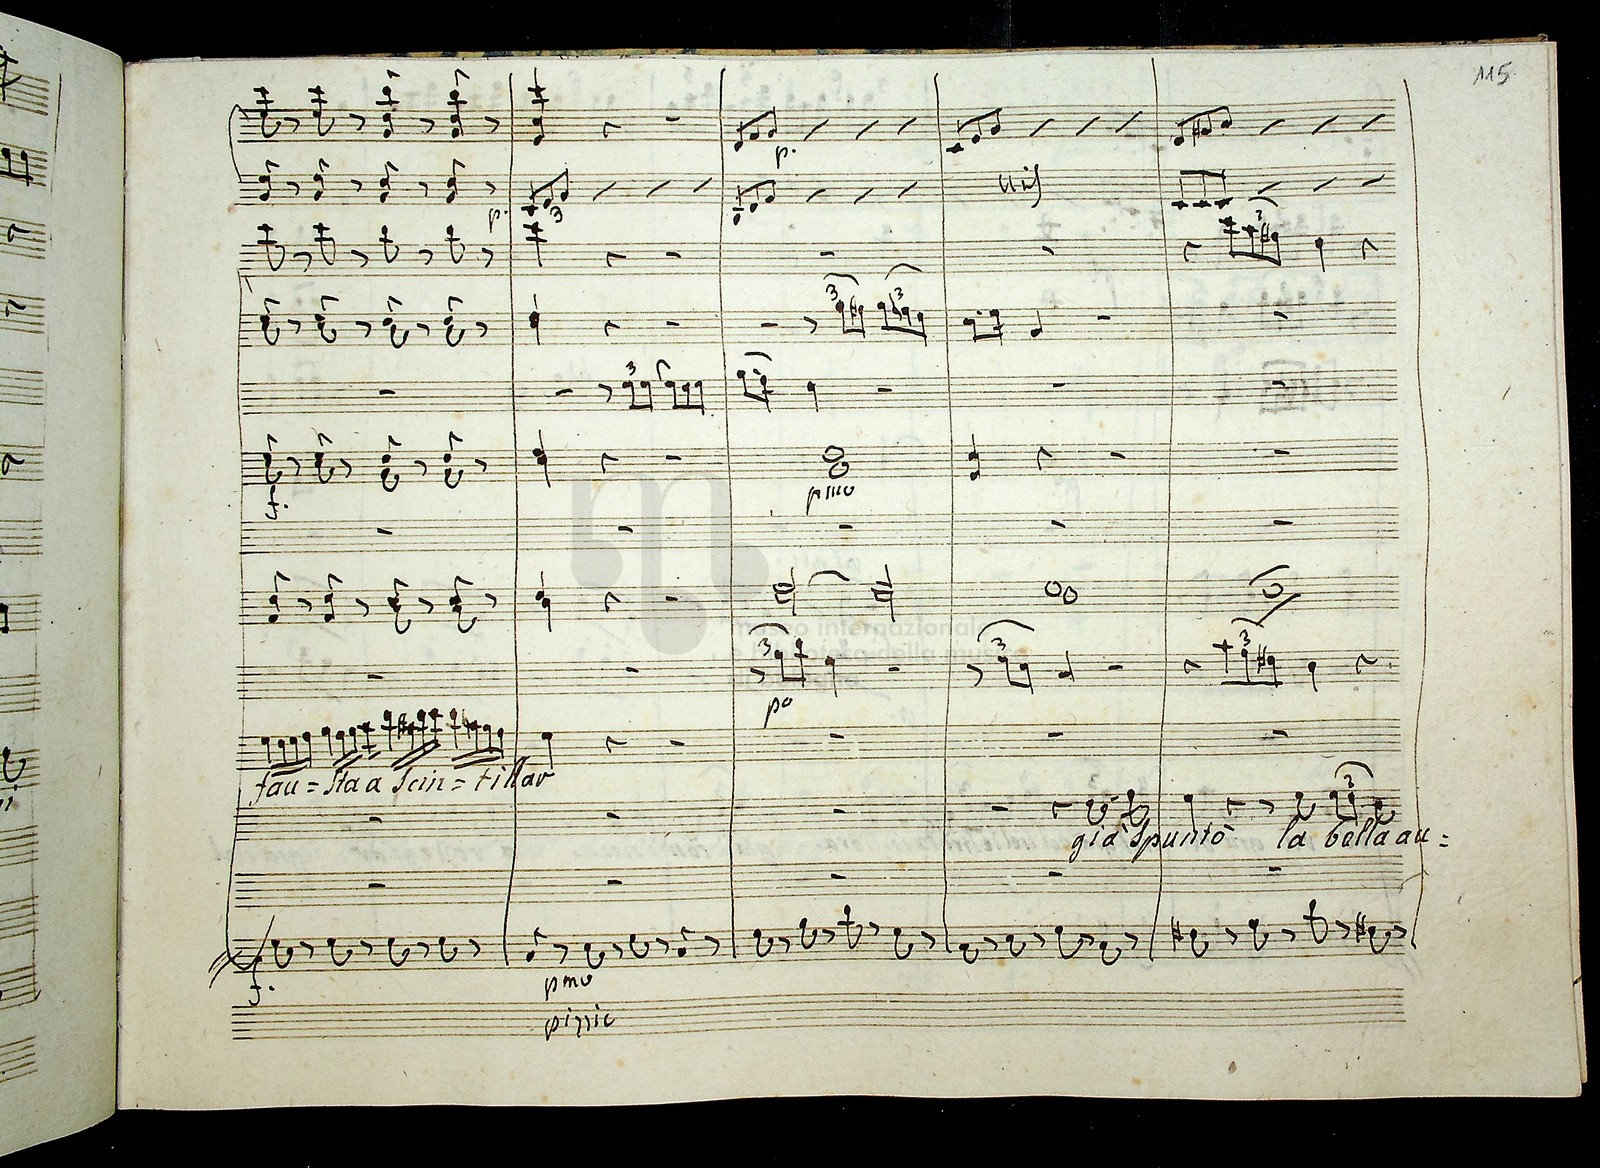 115
p.
p.
3
unis
3
3
3
3
f.
pmo
museo internazionale
e biblioteca della musica
3
3
3
po
fau=sta a scin=tillar
3
già spuntò la bella au=
f.
pmo
pizzic